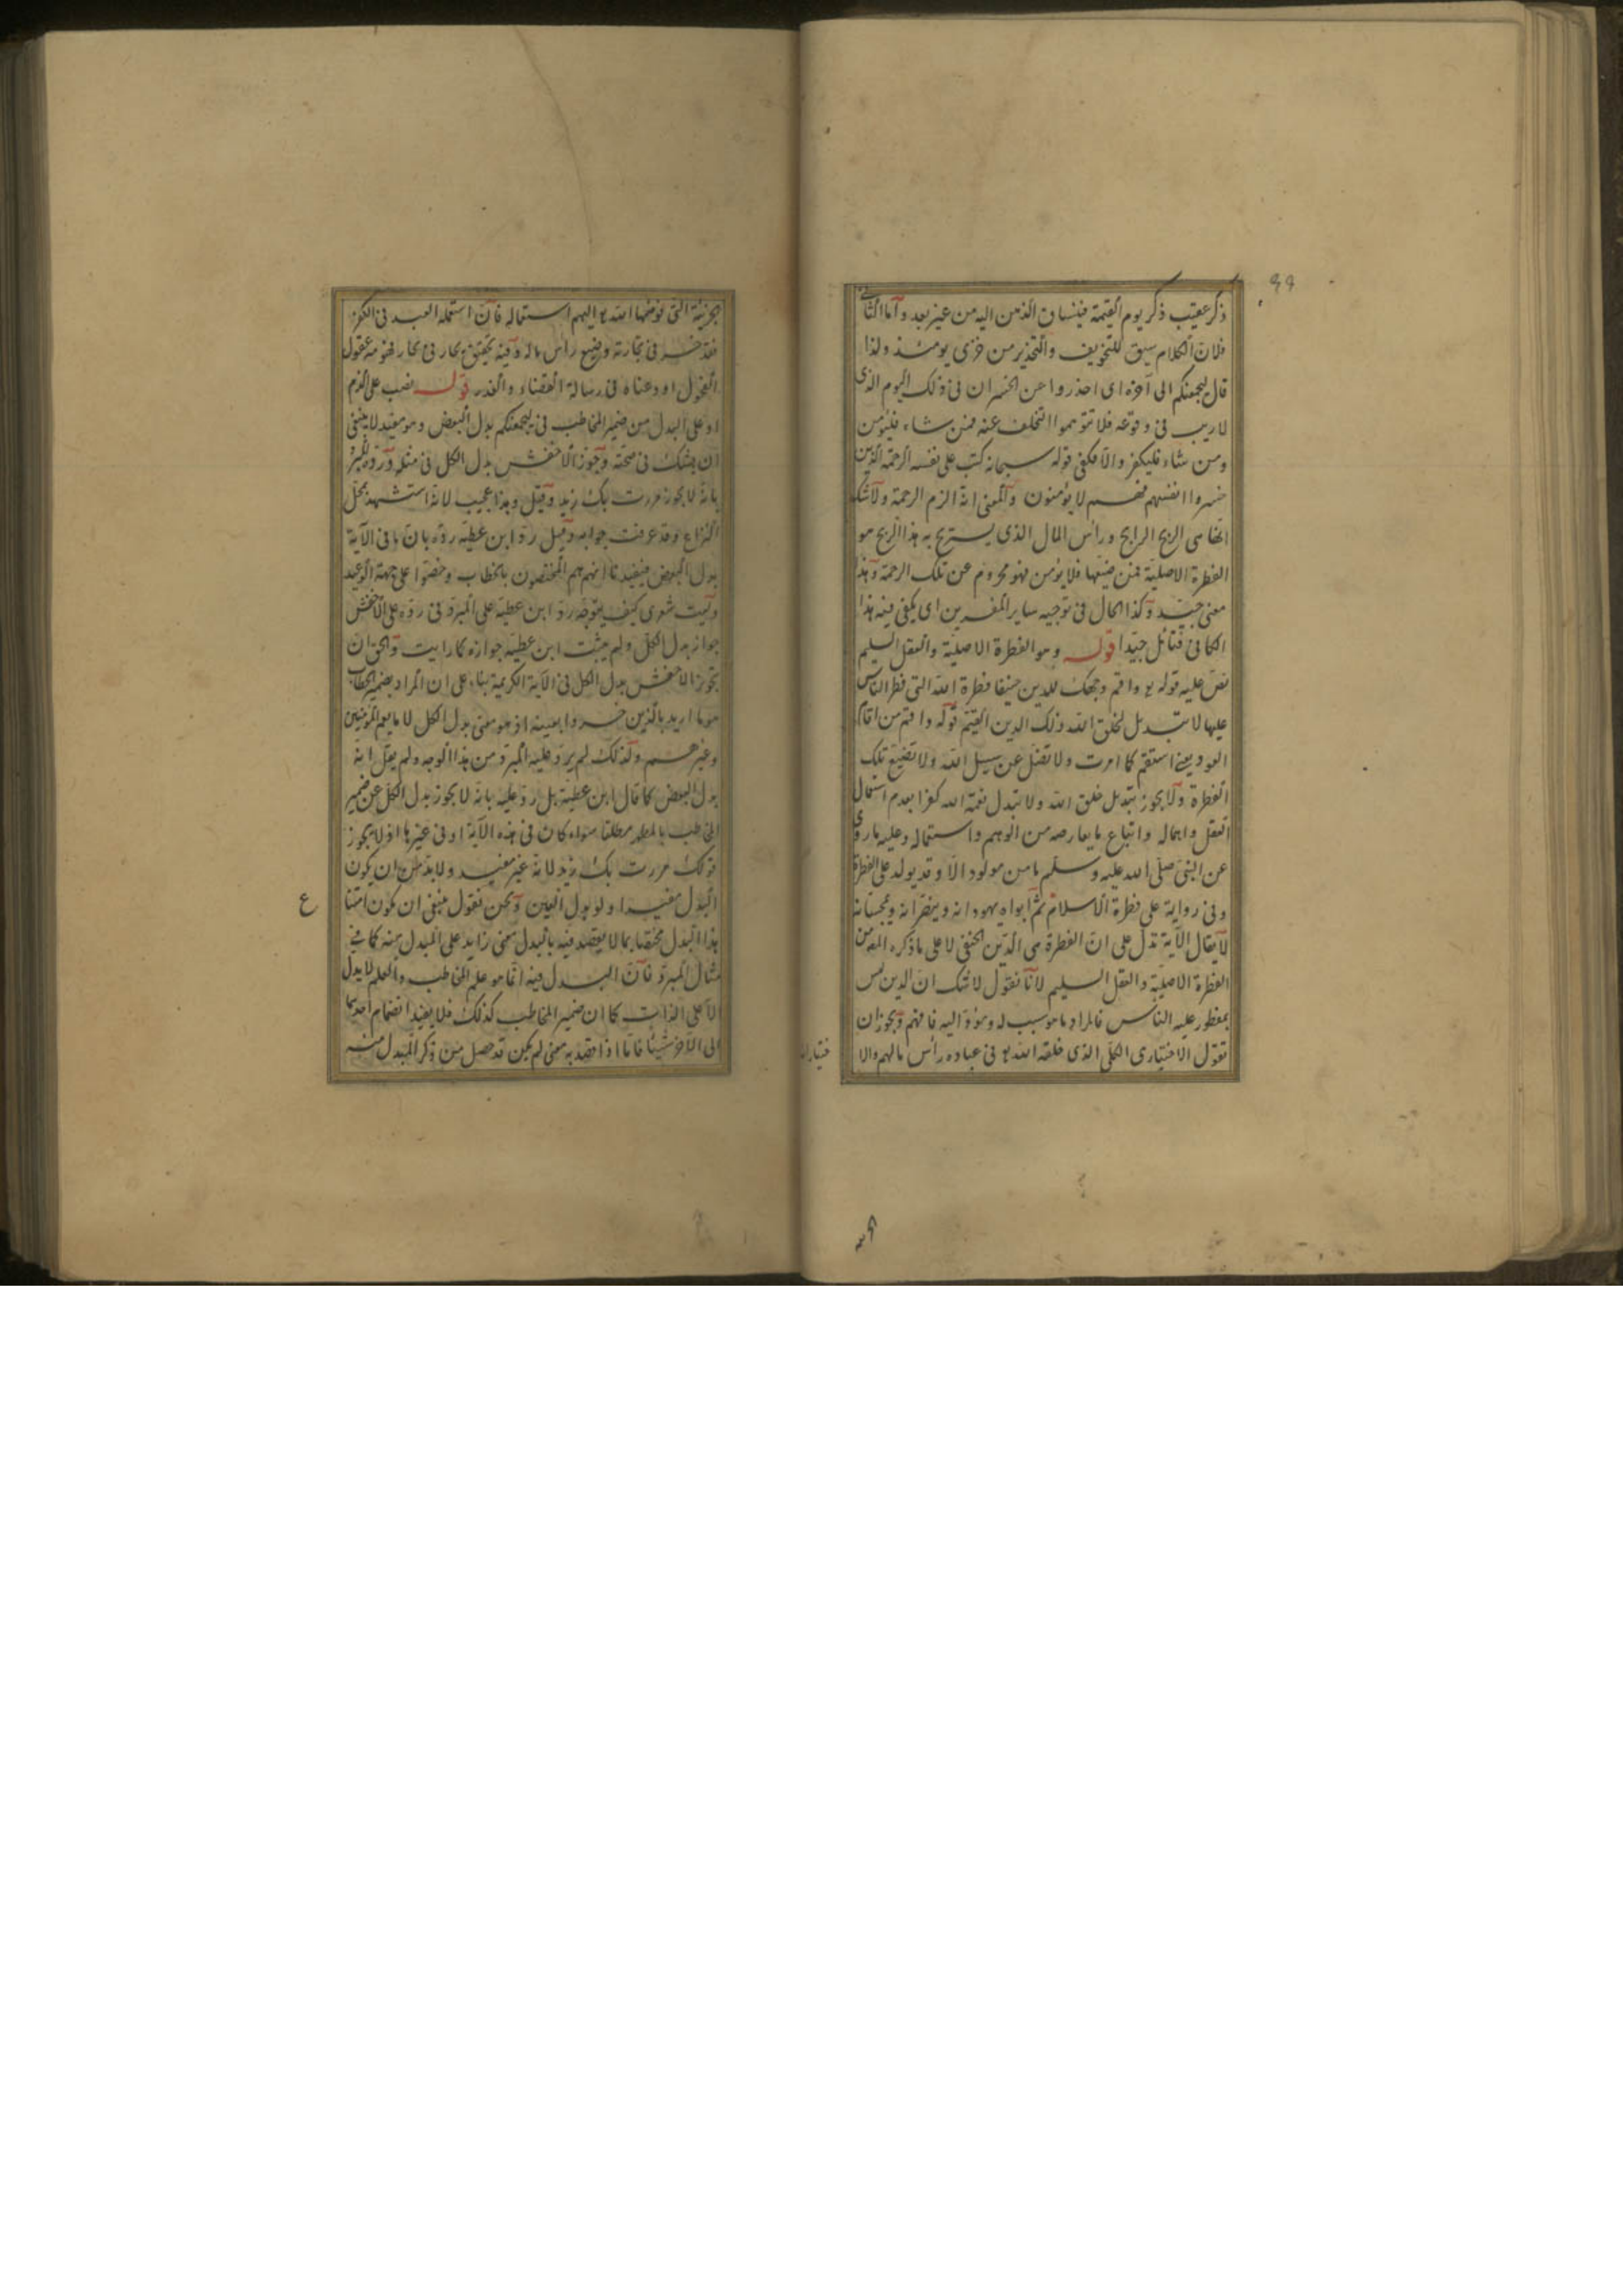 ٩٩
ذكر عقيب ذكر يوم القيمة فينساق الذهن اليه من غير بعد وآما الثانى
فلان الكلام سيق للتخويف والتحذير من خزى يومئذ ولذا
قال ليجمعنكم الى آخره اى احذروا عن الخسران فى ذلك اليوم الذى
لا ريب فى وقوعه فلا تتوهموا التخلف عنه فمن شاء فليؤمن
ومن شاء فليكفر والا فكفى قوله سبحانه كتب على نفسه الرحمة الذين
خسروا انفسهم فهم لا يؤمنون والمعنى انه الزم الرحمة ولا شك
انها هى الربح الرابح ورأس المال الذى يستربح به هذا الربح هو
الفطرة الاصلية فمن ضيعها فلا يؤمن فهو محروم عن تلك الرحمة وهذا
معنى جيد وكذا الحال فى توجيه ساير المفسرين اى يكفى فيه هذا
الكافى فتأمل جيدا قوله وهو الفطرة الاصلية والعقل السليم
نص عليه قوله تع واقم وجهك للدين حنيفا فطرة الله التى فطر الناس
عليها لا تبديل لخلق الله ذلك الدين القيم قوله واقم من اقام
العود يعنى استقم كما امرت ولا تضل عن سبيل الله ولا تضيع تلك
الفطرة ولا يجوز تبديل خلق الله ولا تبدل نعمة الله كفرا بعدم استعمال
العقل واهماله واتباع ما يعارضه من الوهم واستعماله وعليه ما روى
عن النبى صلى الله عليه وسلم ما من مولود الا وقد يولد على الفطرة
وفى رواية على فطرة الاسلام ثم ابواه يهودانه وينصرانه ويمجسانه
لا يقال الآية تدل على ان الفطرة هى الدين الحنفى لا على ما ذكره المص من
الفطرة الاصلية والعقل السليم لانا نقول لا شك ان الدين ليس
بمفطور عليه الناس فالمراد ما هو سبب له ومؤد اليه فافهم ويجوز ان
نقول الاختيارى الكلى الذى خلقه الله تع فى عباده رأس مالهم والا
جزئية التى فوضها الله تع اليهم استعماله فان استعمله العبد فى الكفر
فقد خسر فى تجارته وضيع رأس ماله وفيه تحقيق بحار فى بحار فهومه عقول
الفحول اودعناه فى رسالة القضاء والقدر قوله نصب على الذم
او على البدل من ضمير المخاطب فى ليجمعنكم بدل البعض وهو مفيد لا ينبغى
ان يشك فى صحته وجوز الاخفش بدل الكل فى مثله ورده المبرد
بانه لا يجوز مررت بك زيد وقيل وهذا عجيب لانه استشهد بمحل
النزاع وقد عرفت جوابه وقيل رد ابن عطية رده بان ما فى الآية
بدل البعض فيفيدنا انهم هم المختصون بالخطاب وخصوا على جهة الوعيد
وليت شعرى كيف يتوجه رد ابن عطية على المبرد فى رده على الاخفش
جواز بدل الكل ولم يثبت ابن عطية جوازه كما رايت والحق ان
تجوز الاخفش بدل الكل فى الآية الكريمة بناء على ان المراد بضمير الخطاب
هو ما اريد بالذين خسروا بعينه اذ هو معنى بدل الكل لا ما يعم المؤمنين
وغيرهم ولذلك لم يرد عليه المبرد من هذا الوجه ولم يقل انه
بدل البعض كما قال ابن عطية بل رد عليه بانه لا يجوز بدل الكل عن ضمير
المخاطب بالمظهر مطلقا سواء كان فى هذه الآية او فى غيرها اذ لا يجوز
قولك مررت بك زيد لانه غير مفيد ولا بد من ان يكون
البدل مفيدا ولو بدل العين ونحن نقول ينبغى ان يكون امتناع
هذا البدل مختصا بما لا يقصد فيه بالبدل معنى زايد على المبدل منه كما فى
مثال المبرد فان البدل فيه انما هو علم المخاطب والعلم لا يدل
الا على الذات كما ان ضمير المخاطب كذلك فلا يفيد انضمام احدهما
الى الآخر شيئا فاما اذا قصد به معنى لم يكن قد حصل من ذكر المبدل منه